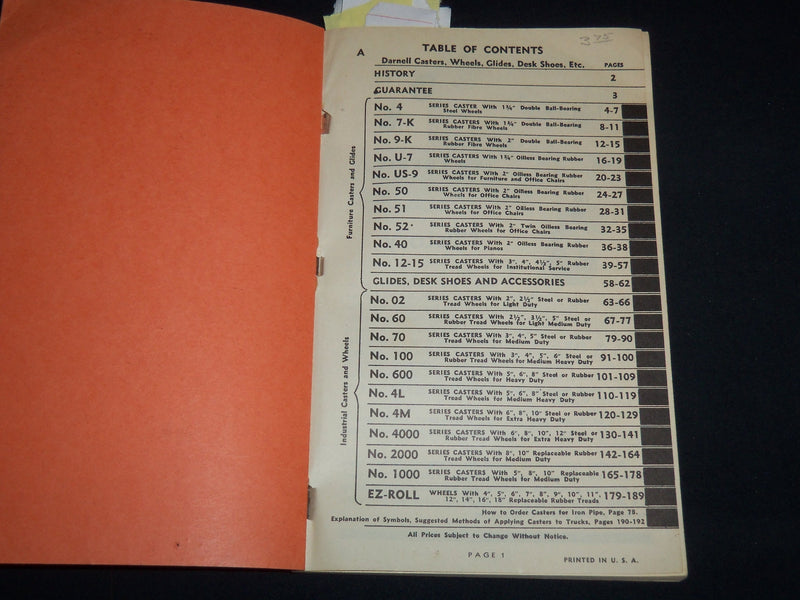 375
A
TABLE OF CONTENTS
Darnell Casters, Wheels, Glides, Desk Shoes, Etc. PAGES
HISTORY 2
GUARANTEE 3
Furniture Casters and Glides
No. 4 SERIES CASTER With 1¾" Double Ball-Bearing 4-7
Steel Wheels
No. 7-K SERIES CASTERS With 1¾" Double Ball-Bearing 8-11
Rubber Fibre Wheels
No. 9-K SERIES CASTERS With 2" Double Ball-Bearing 12-15
Rubber Fibre Wheels
No. U-7 SERIES CASTERS With 1¾" Oilless Bearing Rubber 16-19
Wheels
No. US-9 SERIES CASTERS With 2" Oilless Bearing Rubber 20-23
Wheels for Furniture and Office Chairs
No. 50 SERIES CASTERS With 2" Oilless Bearing Rubber 24-27
Wheels for Office Chairs
No. 51 SERIES CASTERS With 2" Oilless Bearing Rubber 28-31
Wheels for Office Chairs
No. 52 SERIES CASTERS With 2" Twin Oilless Bearing 32-35
Rubber Wheels for Office Chairs
No. 40 SERIES CASTERS With 2" Oilless Bearing Rubber 36-38
Wheels for Pianos
No. 12-15 SERIES CASTERS With 3", 4", 4½", 5" Rubber 39-57
Tread Wheels for Institutional Service
GLIDES, DESK SHOES AND ACCESSORIES 58-62
Industrial Casters and Wheels
No. 02 SERIES CASTERS With 2", 2½" Steel or Rubber 63-66
Tread Wheels for Light Duty
No. 60 SERIES CASTERS With 2½", 3½", 5" Steel or 67-77
Rubber Tread Wheels for Light Medium Duty
No. 70 SERIES CASTERS With 3", 4", 5" Steel or Rubber 79-90
Tread Wheels for Medium Duty
No. 100 SERIES CASTERS With 3", 4", 5", 6" Steel or 91-100
Rubber Tread Wheels for Medium Heavy Duty
No. 600 SERIES CASTERS With 5", 6", 8" Steel or Rubber 101-109
Tread Wheels for Heavy Duty
No. 4L SERIES CASTERS With 5", 6", 8" Steel or Rubber 110-119
Tread Wheels for Medium Heavy Duty
No. 4M SERIES CASTERS With 6", 8", 10" Steel or Rubber 120-129
Tread Wheels for Extra Heavy Duty
No. 4000 SERIES CASTERS With 6", 8", 10", 12" Steel or 130-141
Rubber Tread Wheels for Extra Heavy Duty
No. 2000 SERIES CASTERS With 8", 10" Replaceable Rubber 142-164
Tread Wheels for Medium Duty
No. 1000 SERIES CASTERS With 5", 8", 10" Replaceable 165-178
Rubber Tread Wheels for Medium Duty
EZ-ROLL WHEELS With 4", 5", 6", 7", 8", 9", 10", 11", 179-189
12", 14", 16", 18" Replaceable Rubber Treads
How to Order Casters for Iron Pipe, Page 78.
Explanation of Symbols, Suggested Methods of Applying Casters to Trucks, Pages 190-192
All Prices Subject to Change Without Notice.
PAGE 1
PRINTED IN U. S. A.